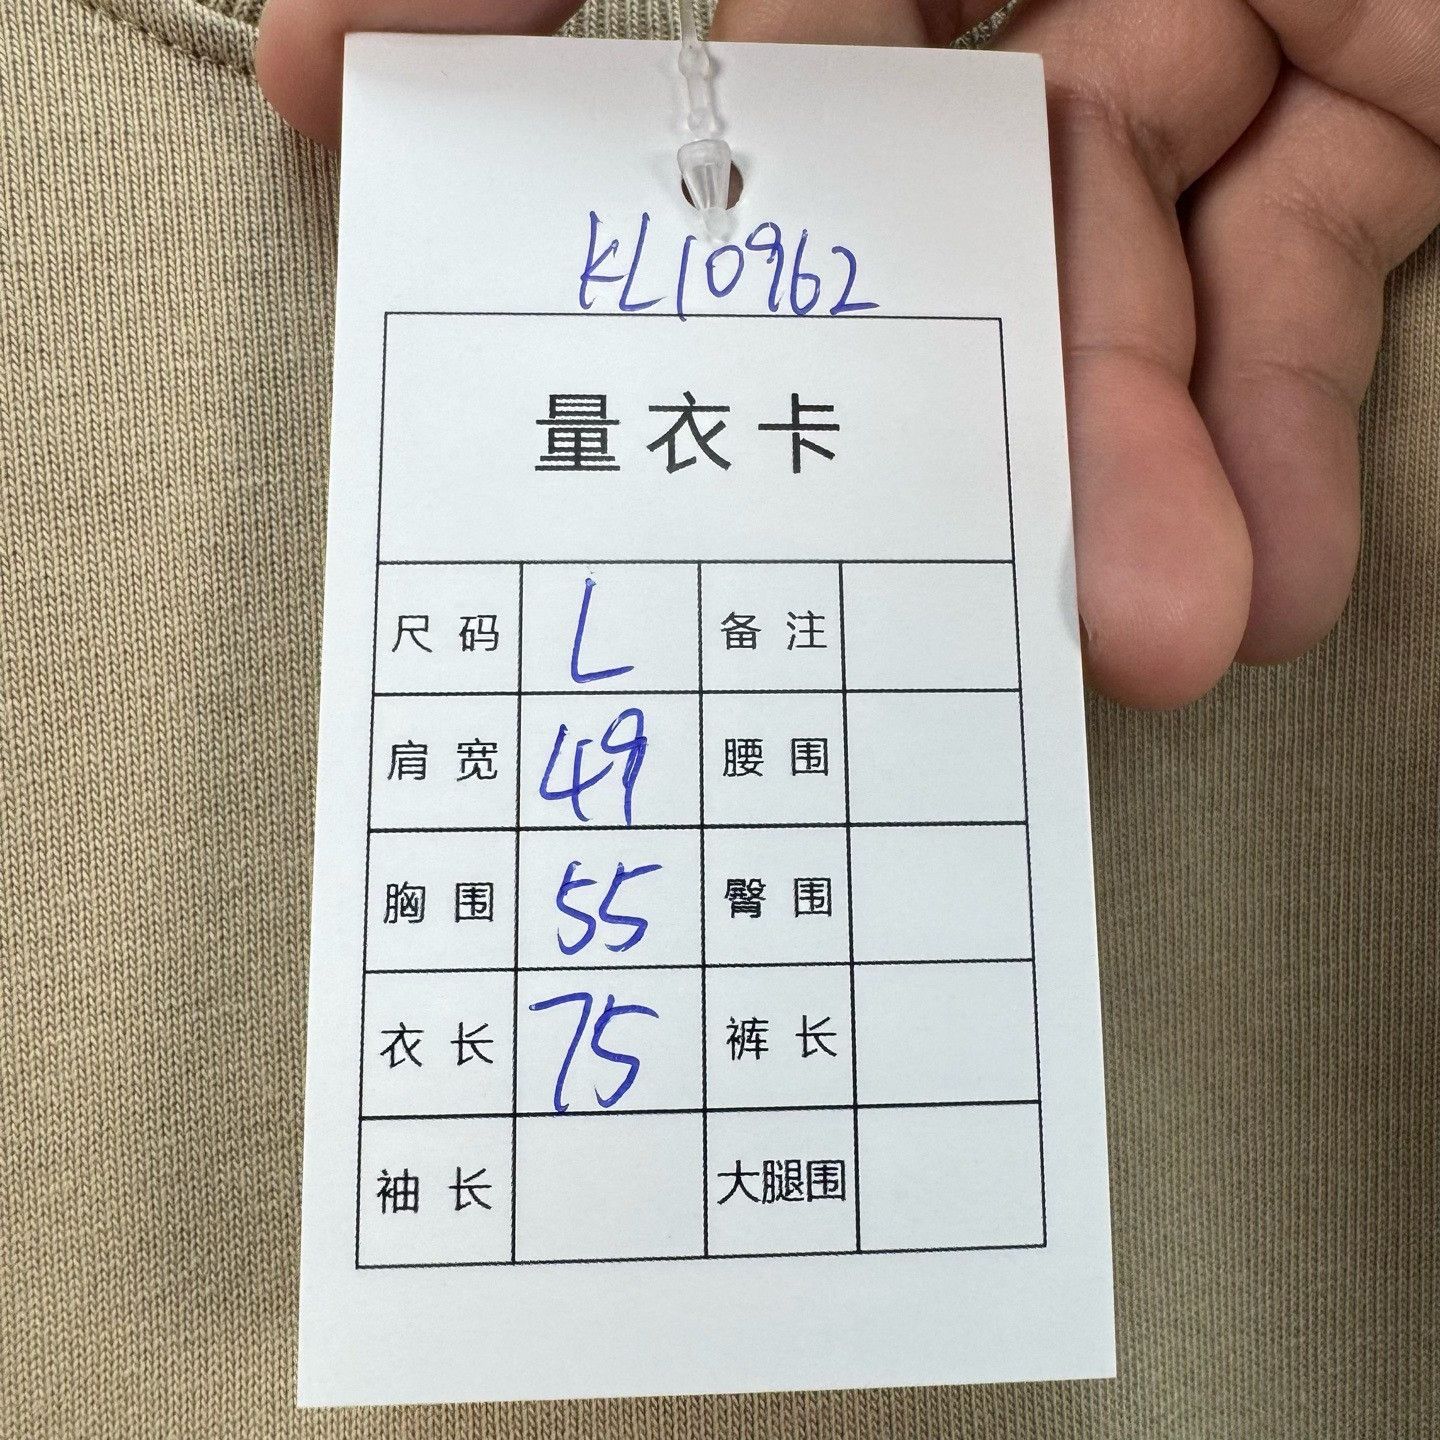 KL10962
量衣卡
尺码 L 备注
肩宽 49 腰围
胸围 55 臀围
衣长 75 裤长
袖长 大腿围